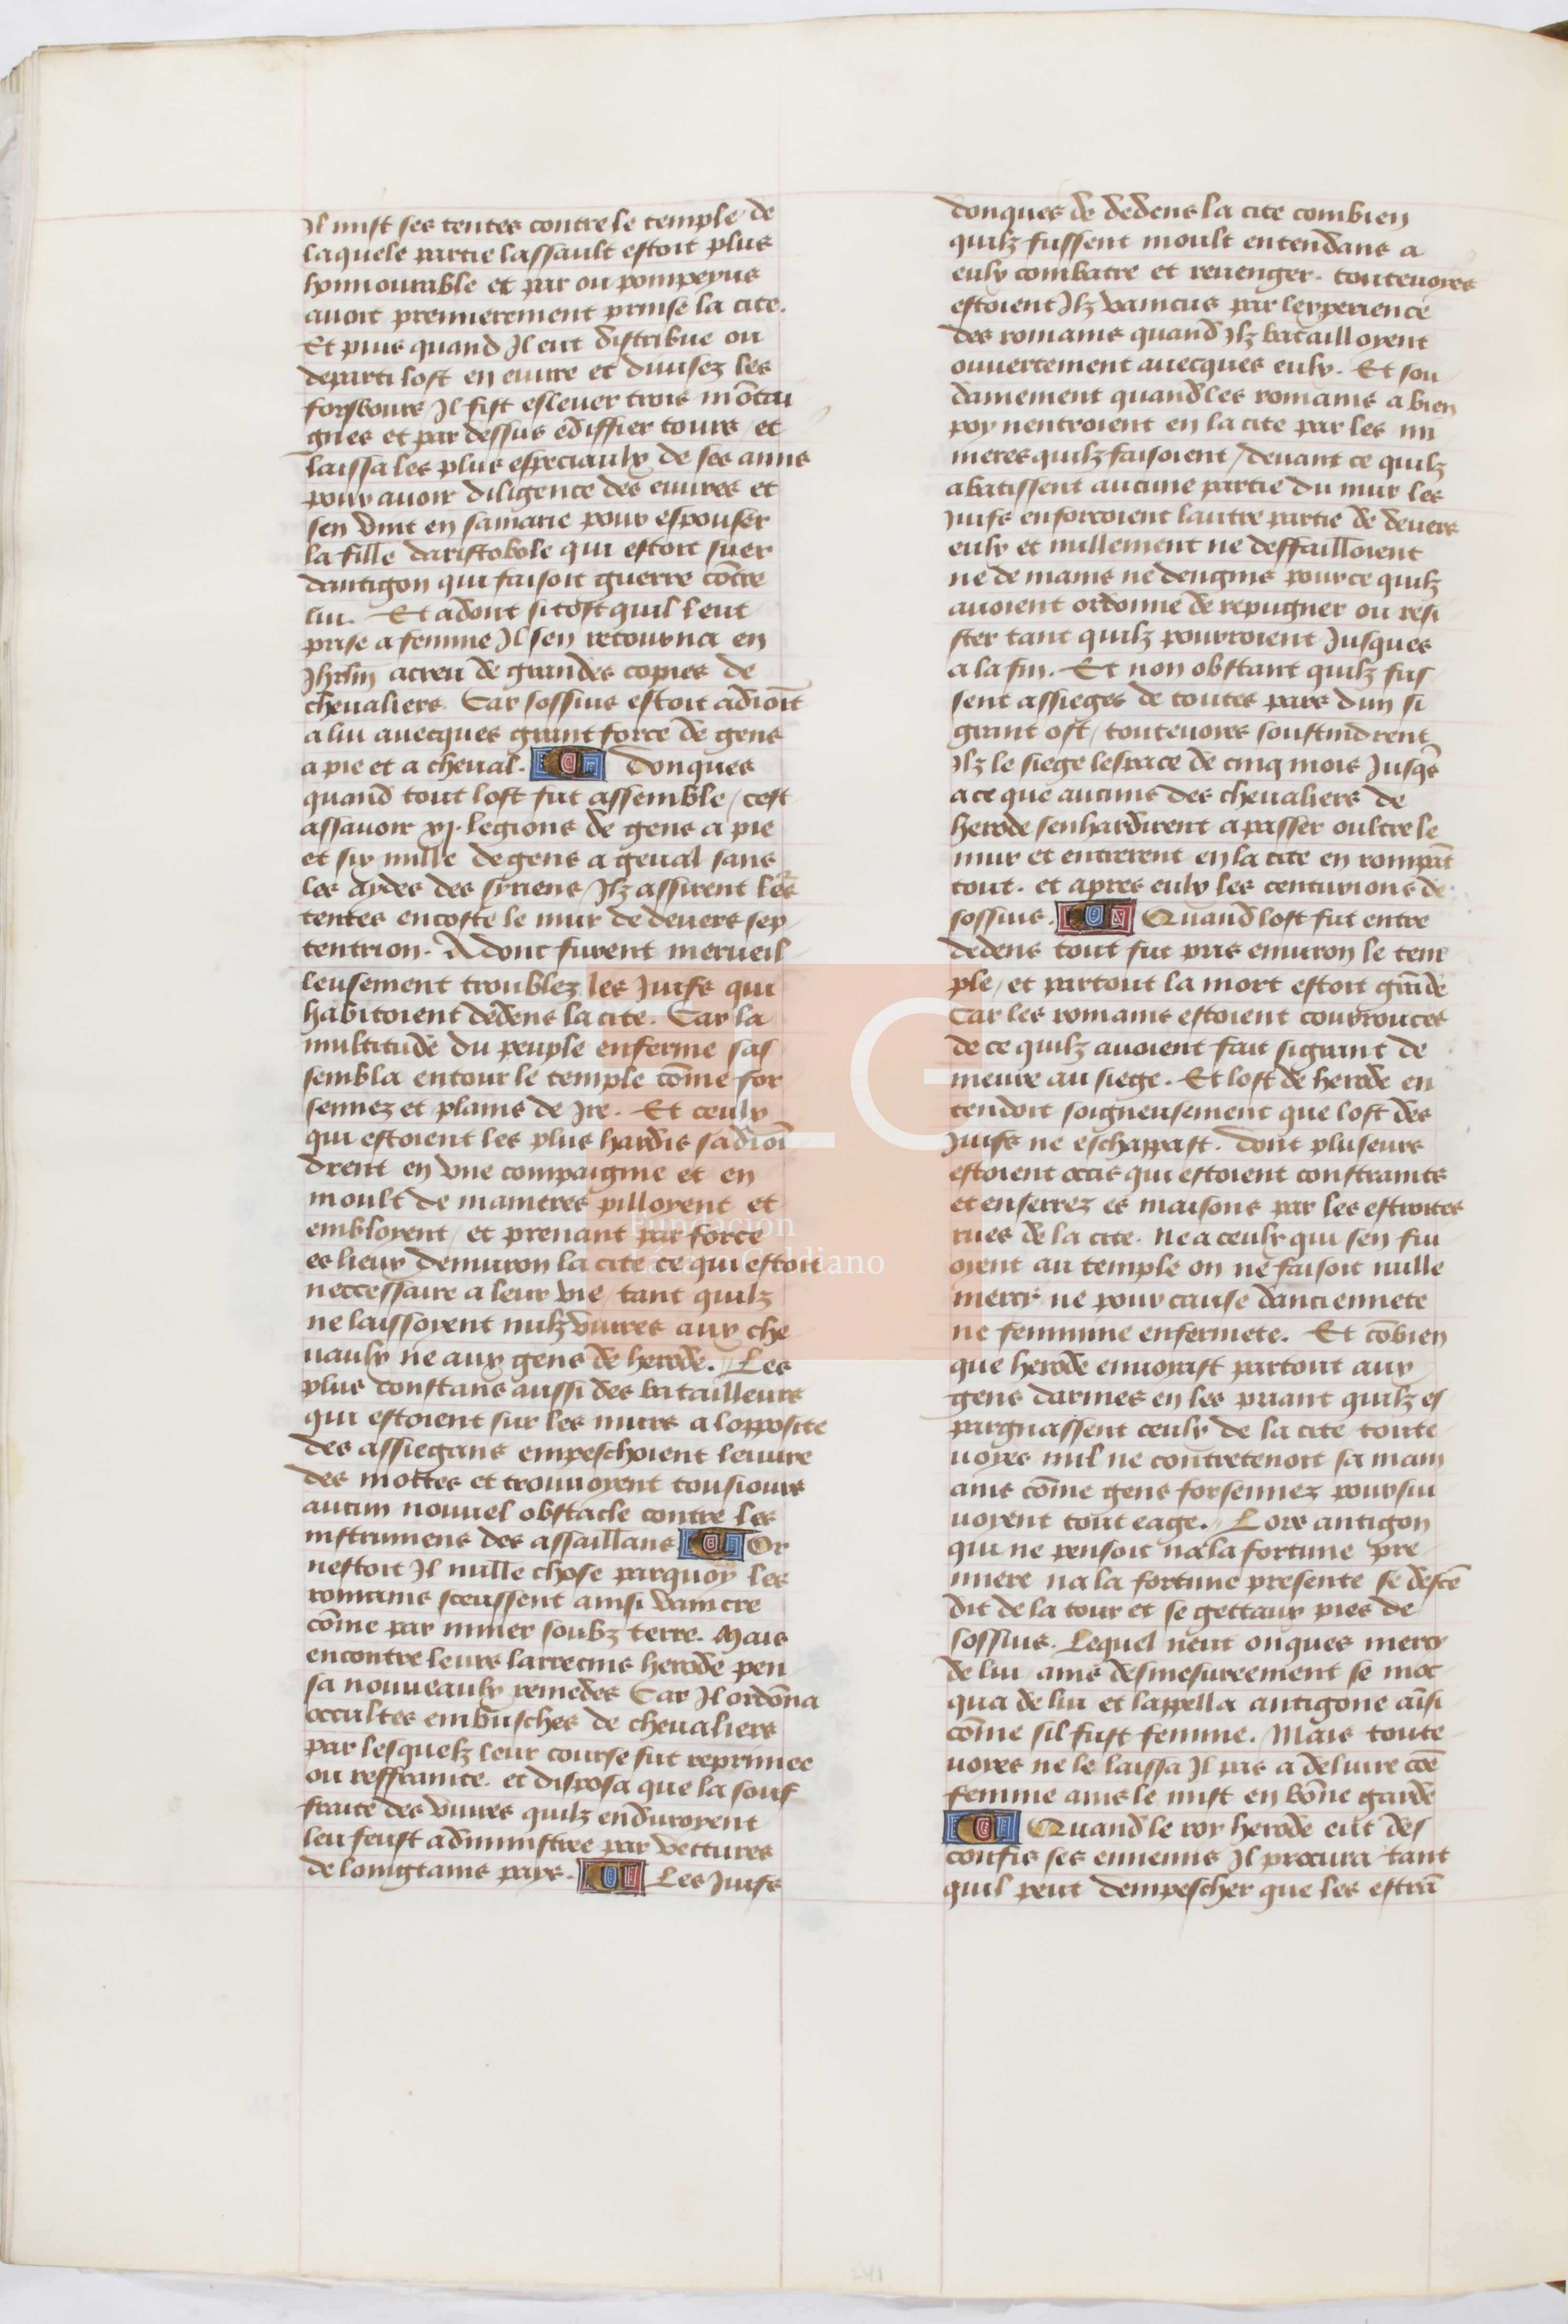 Il mist ses tentes contre le temple de
laquele partie lassault estoit plus
honnourable et par ou pompeyus
auoit premierement prinse la cite.
Et puis quand Il eut distribue ou
departi lost en euure et diuisez les
forsbours Il fist esleuer trois mōtai
gnes et par dessus ediffier tours / et
laissa les plus especiaulx de ses amis
pour auoir diligence des euures et
sen vint en samarie pour espouser
la fille daristobole qui estoit suer
dantigon qui faisoit guerre cōtre
lui. Et adont si tost quil leut
prise a femme Il sen retourna en
Jhrlm acreu de grandes copies de
cheualiers. Car sossius estoit adioīt
a lui auecques grant force de gens
a pie et a cheual. Donques
quand tout lost fut assemble / cest
assauoir xj. legions de gens a pie
et six mille de gens a geual sans
les aydes des syriens / Ilz assirent les
tentes encoste le mur de deuers sep
tentrion. Adont furent merueil
leusement troublez les Juifs qui
habitoient dedens la cite. Car la
multitude du peuple enferme sas
sembla entour le temple cōme for
sennez et plains de Ire. Et ceulx
qui estoient les plus hardis sadioī
drent en vne compaignie et en
moult de manieres pilloyent et
embloyent / et prenant par force
es lieux demuron la cite ce qui estoit
neccessaire a leur vie / tant quilz
ne laissoyent nulz viures aux che
uaulx ne aux gens de herode. / Les
plus constans aussi des batailleurs
qui estoient sur les murs a lopposite
des assiegans empeschoient leuure
des mottes et trouuoyent tousiours
aucun nouuel obstacle contre les
instrumens des assaillans Or
nestoit Il nulle chose parquoy les
romains sceussent ainsi vaincre
cōme par miner soubz terre. Mais
encontre leurs larrecins herode pen
sa nouueaulx remedes Car Il ordōna
occultes embusches de cheualiers
par lesquelz leur course fut reprimee
ou reffrainte. et disposa que la souf
fraite des viures quilz enduroyent
leu feust administree par vectures
de longtains pays. Les Juifs
donques de dedens la cite combien
quilz fussent moult entendans a
eulx combatre et reuenger. toutevoies
estoient Ilz vaincus par lexperience
des romains quand Ilz batailloyent
ouuertement auecques eulx. Et sou
dainement quand les romains a bien
poy nentroient en la cite par les mi
nieres quilz faisoient / deuant ce quilz
abatissent aucune partie du mur les
Juifs enforcoient lautre partie de deuers
eulx et nullement ne deffailloient
ne de mains ne dengins pource quilz
auoient ordonne de repugner ou resi
ster tant quilz pourroient Jusques
a la fin. Et non obstant quilz fus
sent assieges de toutes pars dun si
grant ost / toutevoies soustindrent
Ilz le siege lespace de cinq mois Jusqs
a ce que aucuns des cheualiers de
herode senhardirent a passer oultre le
mur et entrerent en la cite en rompāt
tout. et apres eulx les centurions de
sossius. Quand lost fut entre
dedens tout fut pris enuiron le tem
ple / et partout la mort estoit grāde
Car les romains estoient courrouces
de ce quilz auoient fait si grant de
meure au siege. Et lost de herode en
tendoit soigneusement que lost des
Juifs ne eschappast. dont pluseurs
estoient occis qui estoient constrains
et enserrez es maisons par les estroites
rues de la cite. ne a ceulx qui sen fui
oyent au temple on ne faisoit nulle
mercy ne pour cause danciennete
ne feminine enfermete. Et cōbien
que herode enuoyast partout aux
gens darmes en les priant quilz es
pargnassent ceulx de la cite toute
uoyes nul ne contretenoit sa main
ains cōme gens forsennez poursui
uoyent tout eage. / Lors antigon
qui ne pensoit na la fortune pre
miere na la fortune presente se descē
dit de la tour et se getta aux pies de
sossius. Lequel neut onques mercy
de lui ains desmesureement se moc
qua de lui et lappella antigone aīsi
cōme sil fust femme. Mais toute
uoyes ne le laissa Il pas a deliure cōe
femme ains le mist en bōne garde
Quand le roy herode eut des
confis ses ennemis Il procura tant
quil peut dempescher que les estrā
FLG
Fundación
Lázaro Galdiano